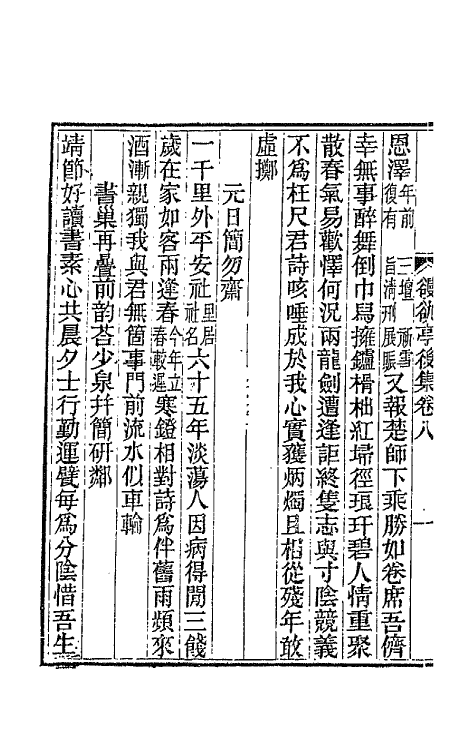 䜱𠋣亭後集卷八
一
恩澤年前復有三壇祈雪旨清刑展賑又報楚師下乘勝如卷席吾儕
幸無事醉舞倒巾舄擁鑪榾柮紅埽徑琅玕碧人情重聚
散春氣易歡懌何況兩龍劍遭逢詎終隻志與寸陰競義
不爲枉尺君詩咳唾成於我心實獲炳燭且相從殘年敢
虛擲
元日簡勿齋
一千里外平安社里居社名六十五年淡蕩人因病得閒三餞
歲在家如客兩逢春今年立春較遲寒鐙相對詩爲伴舊雨頻來
酒漸親獨我與君無箇事門前流水似車輪
書巢再疊前韵荅少泉幷簡研鄰
靖節好讀書素心共晨夕士行勤運甓每爲分陰惜吾生